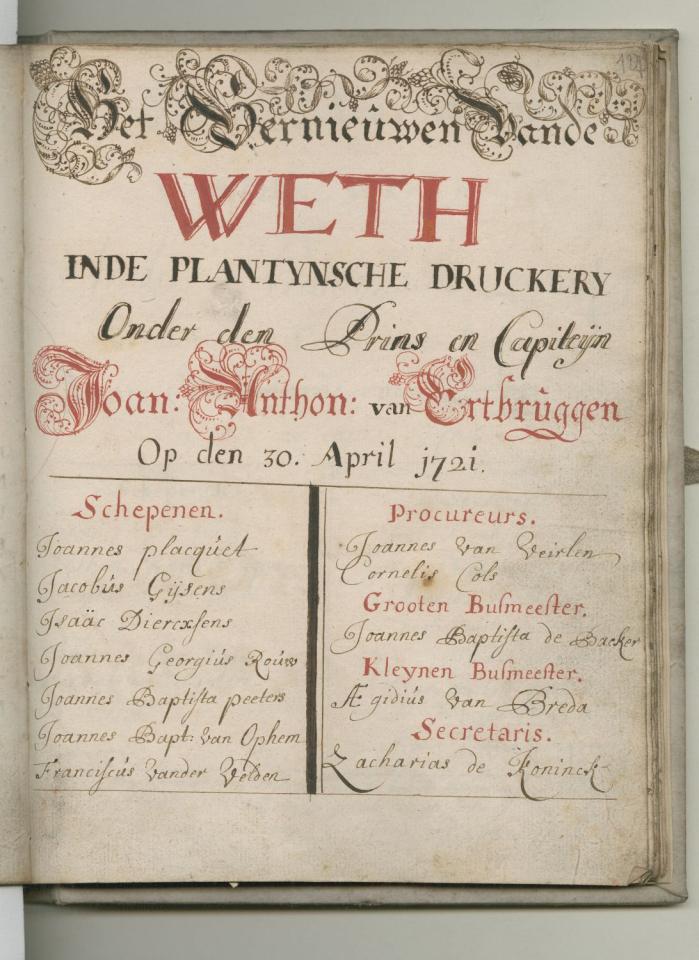 Het Vernieuwen Vande
WETH
INDE PLANTYNSCHE DRUCKERY
Onder den Prins en Capiteÿn
Joan: Anthon: van Ertbrúggen
Op den 30. April 1721.
Schepenen.
Joannes placqúet
Jacobús Gijsens
Isaäc Diercxsens
Joannes Georgiús Roúw
Joannes Baptista peeters
Joannes Bapt: van Ophem
Franciscús Vander Velden
Procureurs.
Joannes Van Veirlen
Cornelis Cols
Grooten Busmeester.
Joannes Baptista de Backer
Kleynen Busmeester.
Ægidiús Van Breda
Secretaris.
Zacharias de Koninck